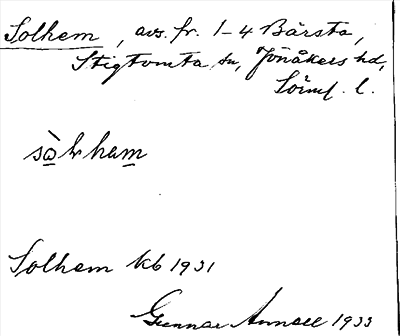 Solhem, avs. fr. 1-4 Bärsta,
Stigtomta sn, Jönåkers hd,
Söml. l.
Solhem kb 1931
Gunnar 1933